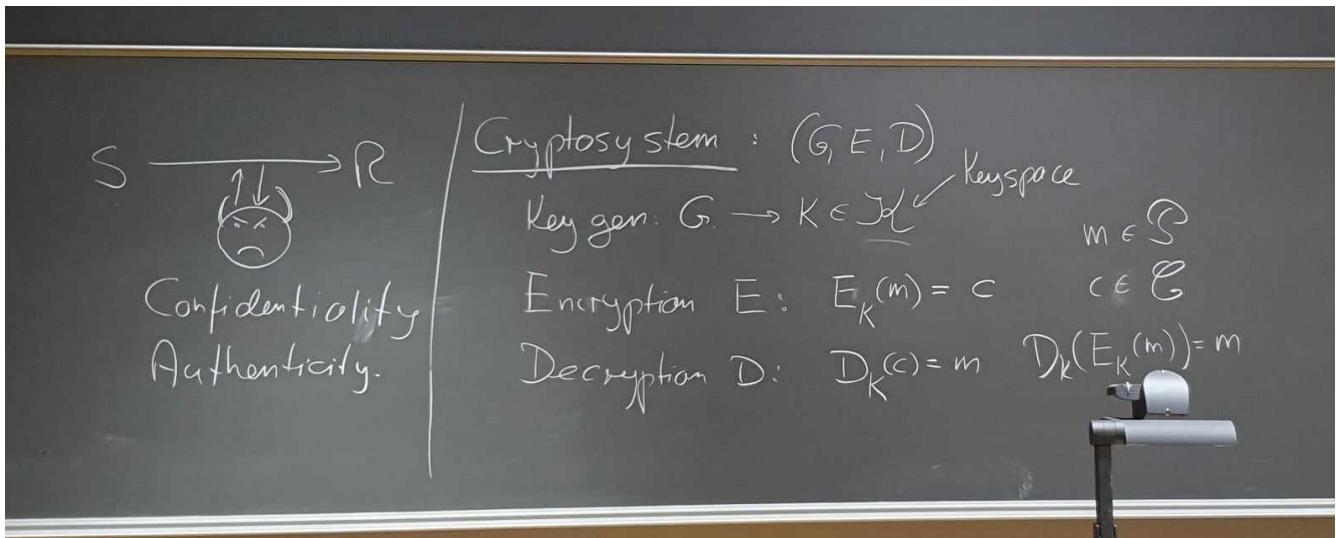 S → R
Confidentiality
Authenticity.
Cryptosystem : (G, E, D)
Key gen: G → K ∈ 𝒦 ← Keyspace
m ∈ 𝒫
Encryption E: E_K(m) = c
c ∈ 𝒞
Decryption D: D_K(c) = m
D_K(E_K(m)) = m